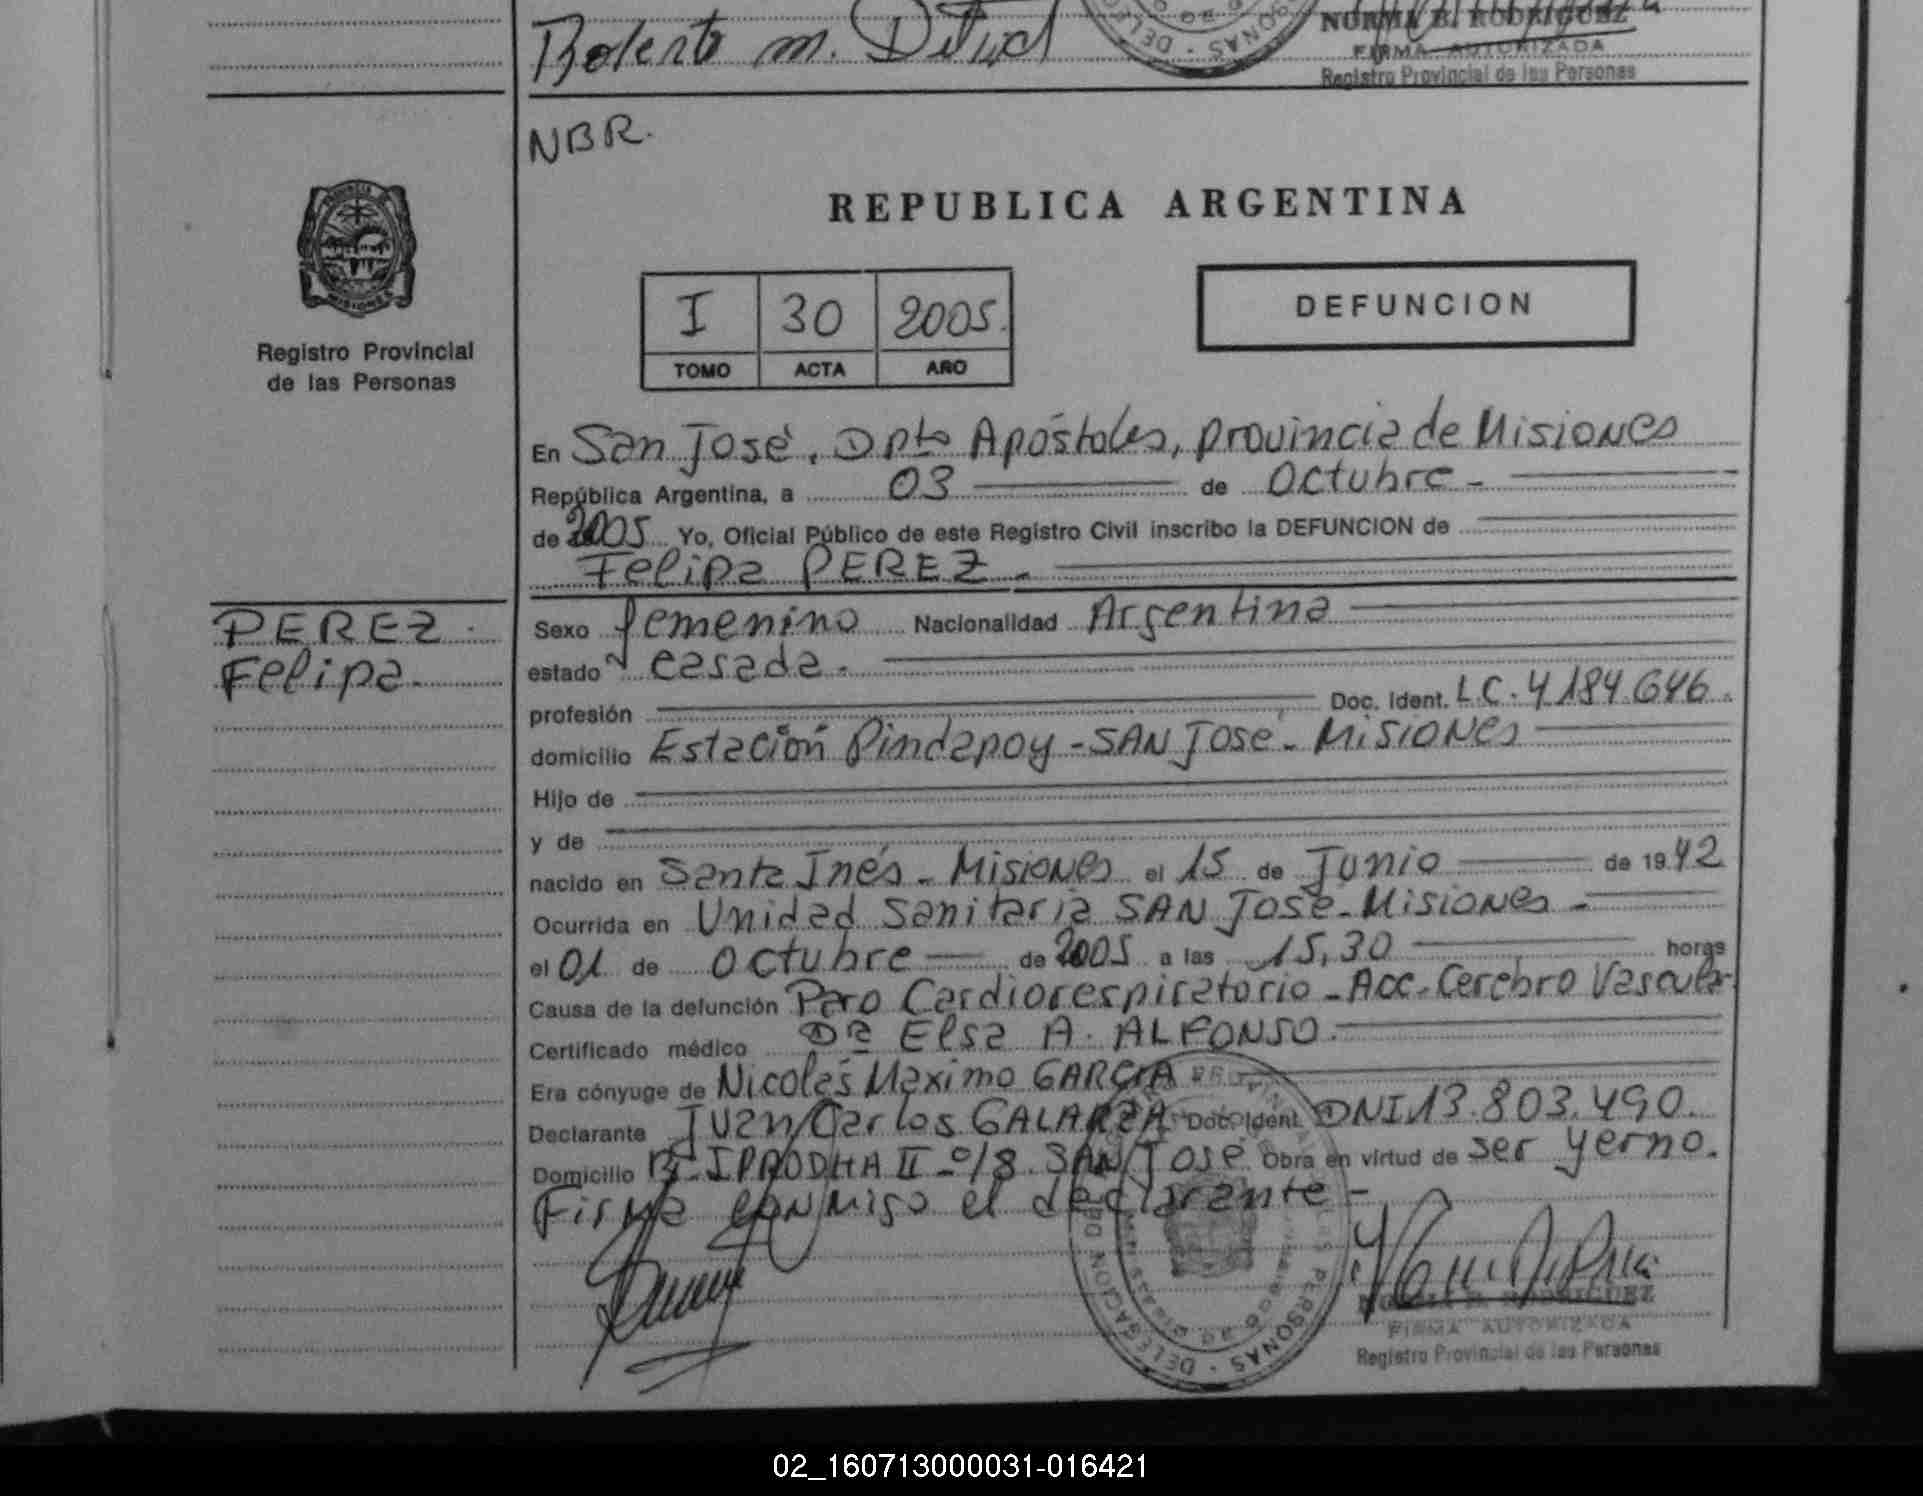 Roberto m.
NORMA B. RODRIGUEZ
FIRMA AUTORIZADA
Registro Provincial de las Personas
NBR.
REPUBLICA ARGENTINA
PROVINCIA DE
MISIONES
Registro Provincial
de las Personas
I 30 2005.
TOMO ACTA AÑO
DEFUNCION
En San José, Dpto Apóstoles, provincia de Misiones
República Argentina, a 03 de Octubre -
de 2005 Yo, Oficial Público de este Registro Civil inscribo la DEFUNCION de
Felipa PEREZ -
PEREZ.
Felipa.
Sexo femenino Nacionalidad Argentina
estado casada.
profesión Doc. Ident. L.C. 4.184.646.
domicilio Estación Pindapoy - SAN José - Misiones
Hijo de
y de
nacido en Santa Inés - Misiones el 15 de Junio de 1942
Ocurrida en Unidad Sanitaria SAN José - Misiones -
el 01 de octubre de 2005 a las 15,30 horas
Causa de la defunción Paro Cardiorespiratorio - Acc. Cerebro Vascular
Certificado médico Dra Elsa A. ALFONSO.
Era cónyuge de Nicolás Maximo GARCIA
Declarante Juan Carlos GALARZA Doc. Ident. DNI 13.803.490.
Domicilio Bº IPRODHA II - c/8. SAN José Obra en virtud de ser yerno.
Firma conmigo el declarante -
DELEGACION
PERSONAS
NORMA B. RODRIGUEZ
FIRMA AUTORIZADA
Registro Provincial de las Personas
02_160713000031-016421